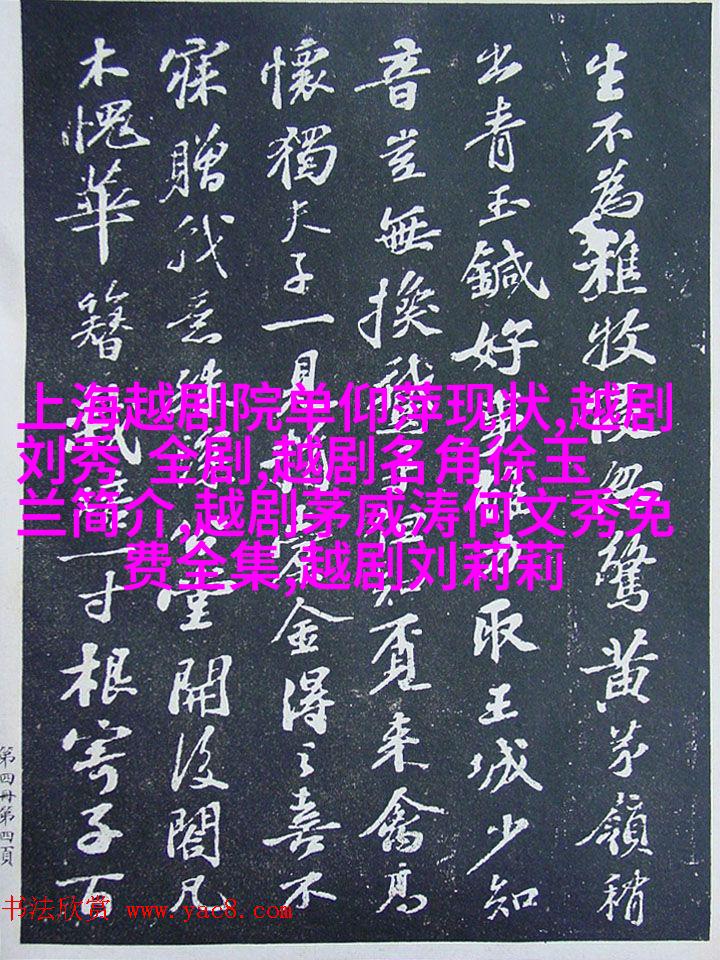 生不為雅牧忽驚黃茅嶺稍
出青玉鍼好取王城少知
音豈無換鵝手但知覓來禽高
懷獨夫子一見捐橐金得之喜不
寐贈我意殊深公堂開後閤凡
木愧華簪栽培一寸根寄子百
上海越剧院单仰萍现状,越剧
刘秀 全剧,越剧名角徐玉
兰简介,越剧茅威涛何文秀免
费全集,越剧刘莉莉
第四冊第四頁
书法欣赏 www.yac8.com